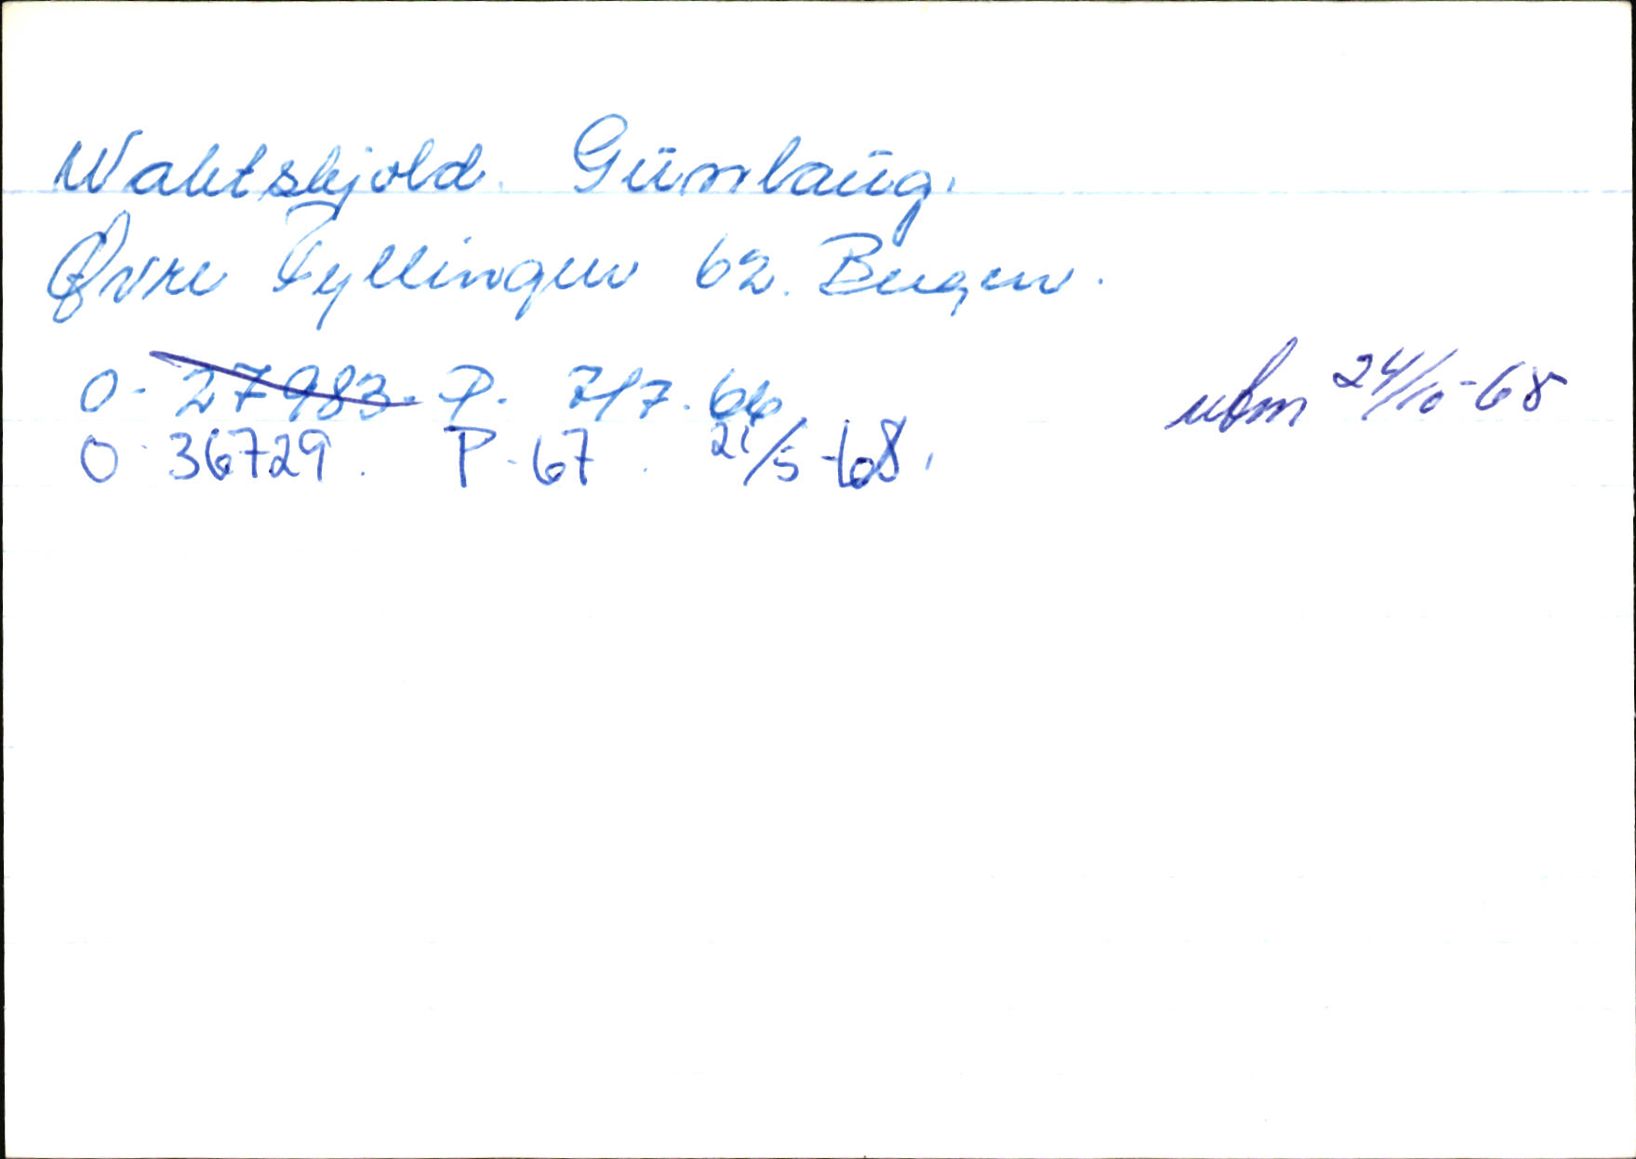 Waktskjold. Gunlaug.
Øvre Fyllingen 62. Bergen.
O- 27983. P. 7/7.66
O 36729. P. 67. 21/5-68.
utm 24/10-68